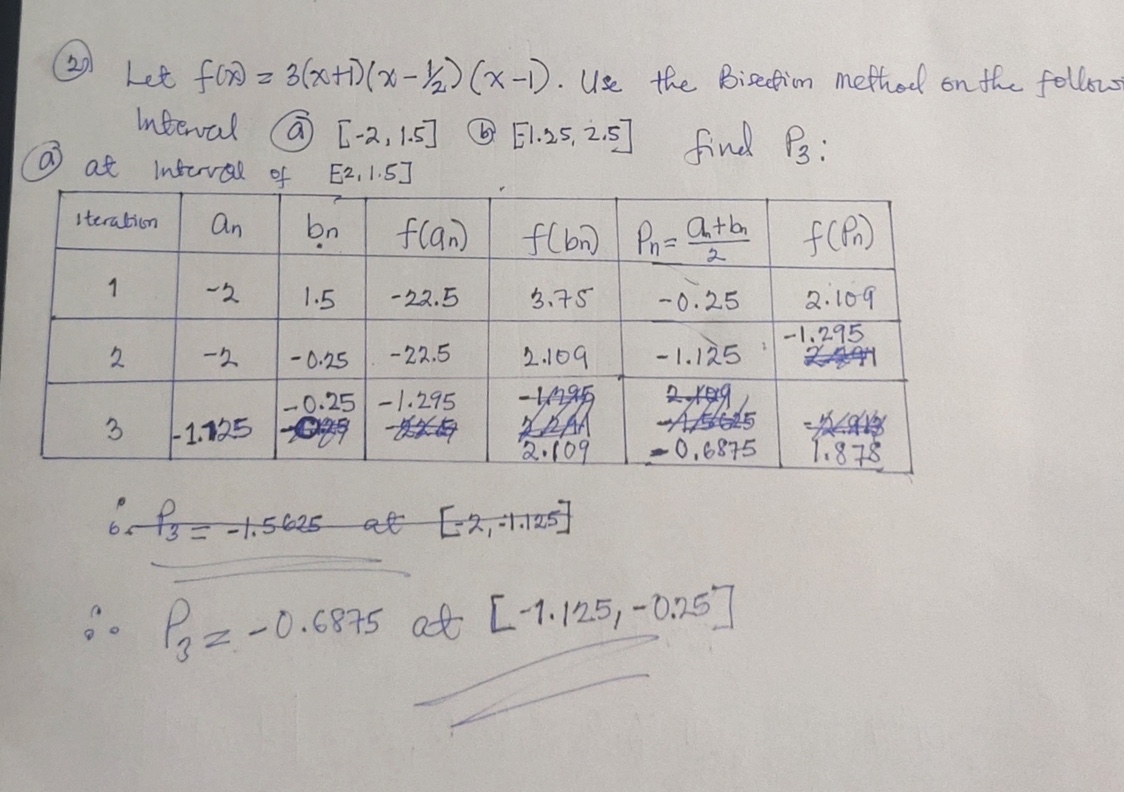 2) Let f(x) = 3(x+1)(x-½)(x-1). Use the Bisection method on the follow
Interval (a) [-2, 1.5] (b) [-1.25, 2.5] find P₃:
(a) at Interval of [-2, 1.5]
Iteration aₙ bₙ f(aₙ) f(bₙ) Pₙ = aₙ+bₙ/2 f(Pₙ)
1 -2 1.5 -22.5 3.75 -0.25 2.109
2 -2 -0.25 -22.5 2.109 -1.125 -1.295
3 -1.125 -0.25 -1.295 2.109 -0.6875 1.878
∴ P₃ = -1.5625 at [-2, -1.125]
∴ P₃ = -0.6875 at [-1.125, -0.25]